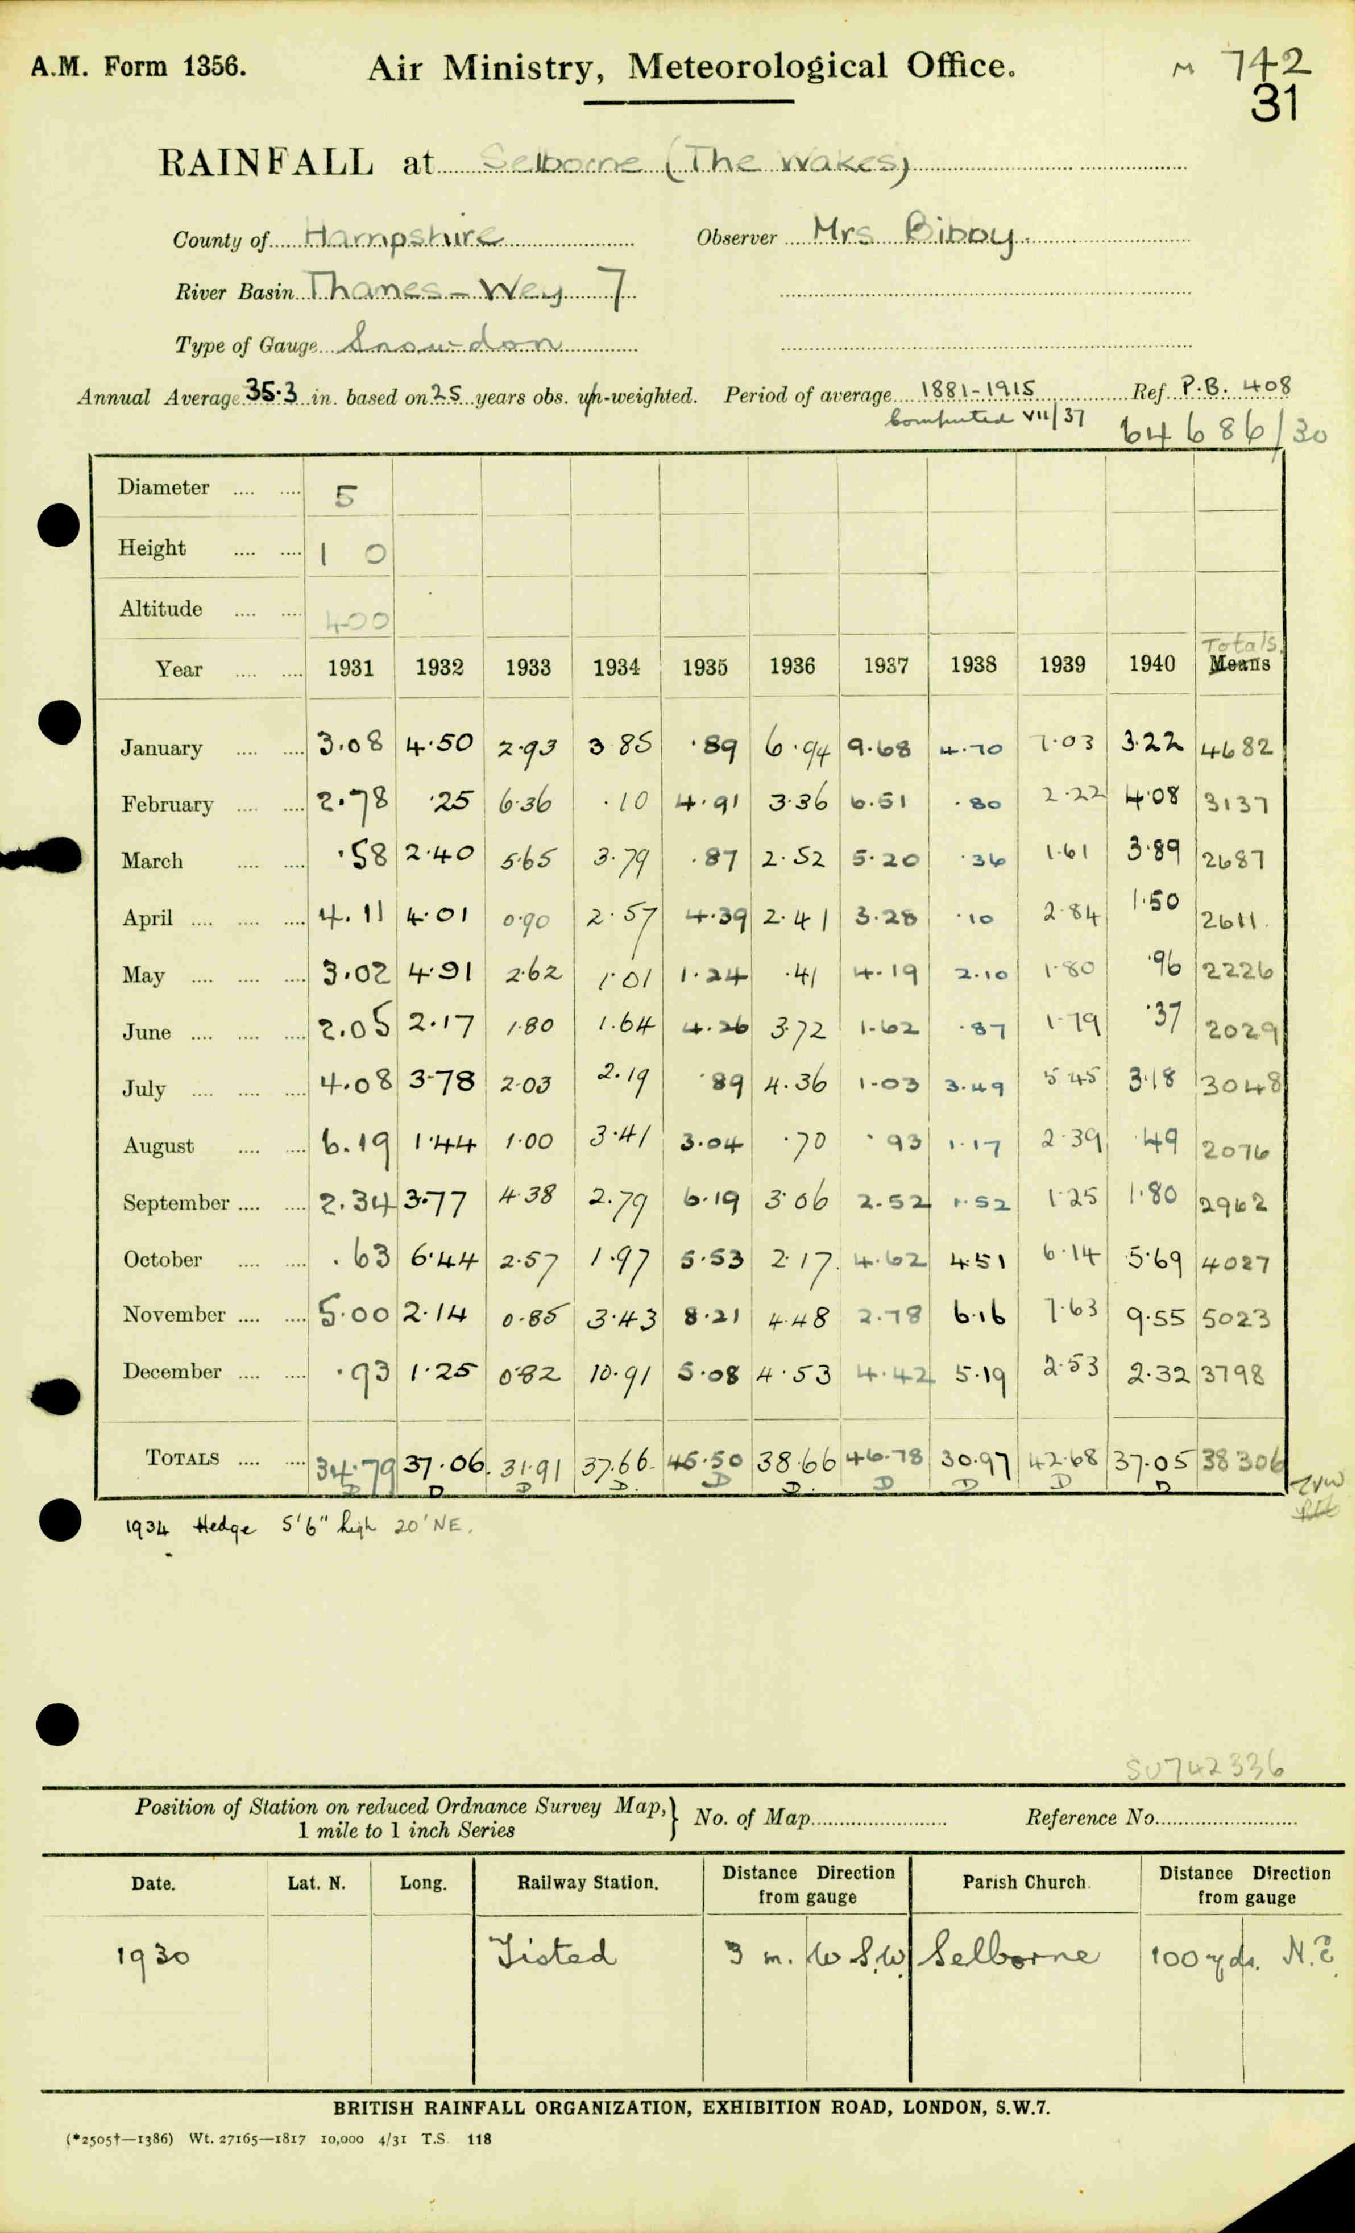 A.M. Form 1356. Air Ministry, Meteorological Office. M 742
31
RAINFALL at Selborne (The Wakes)
County of Hampshire Observer Mrs Bibby.
River Basin Thames - Wey 7
Type of Gauge Snowdon
Annual Average 35.3 in. based on 25 years obs. un-weighted. Period of average 1881-1915 Ref P.B. 408
Computed VII/37 64686/30
Diameter .... .... 5
Height .... .... 1 0
Altitude .... .... 400
Totals.
Year .... .... 1931 1932 1933 1934 1935 1936 1937 1938 1939 1940 Means
January .... .... 3.08 4.50 2.93 3 85 .89 6.94 9.68 4.70 7.03 3.22 4682
February .... .... 2.78 .25 6.36 .10 4.91 3.36 6.51 .80 2.22 4.08 3137
March .... .... .58 2.40 5.65 3.79 .87 2.52 5.20 .36 1.61 3.89 2687
April .... .... .... 4.11 4.01 0.90 2.57 4.39 2.41 3.28 .10 2.84 1.50 2611.
May .... .... .... 3.02 4.91 2.62 1.01 1.24 .41 4.19 2.10 1.80 .96 2226
June .... .... .... 2.05 2.17 1.80 1.64 4.26 3.72 1.62 .87 1.79 .37 2029
July .... .... .... 4.08 3.78 2.03 2.19 .89 4.36 1.03 3.49 5.45 3.18 3048
August .... .... 6.19 1.44 1.00 3.41 3.04 .70 .93 1.17 2.39 .49 2076
September .... .... 2.34 3.77 4.38 2.79 6.19 3.06 2.52 1.52 1.25 1.80 2962
October .... .... .63 6.44 2.57 1.97 5.53 2.17. 4.62 4.51 6.14 5.69 4027
November .... .... 5.00 2.14 0.85 3.43 8.21 4.48 2.78 6.16 7.63 9.55 5023
December .... .... .93 1.25 0.82 10.91 5.08 4.53 4.42 5.19 2.53 2.32 3798
TOTALS .... .... 34.79 37.06. 31.91 37.66. 45.50 38.66 46.78 30.97 42.68 37.05 38306
D D D D. D D. D D D D
1934 Hedge 5'6" high 20' NE.
SU742336
Position of Station on reduced Ordnance Survey Map,} No. of Map Reference No
1 mile to 1 inch Series
Date. Lat. N. Long. Railway Station. Distance Direction from gauge Parish Church. Distance Direction from gauge
1930 Tisted 3 m. W S.W. Selborne 100 yds. N.E.
BRITISH RAINFALL ORGANIZATION, EXHIBITION ROAD, LONDON, S.W.7.
(*2505†—1386) Wt. 27165—1817 10,000 4/31 T.S. 118